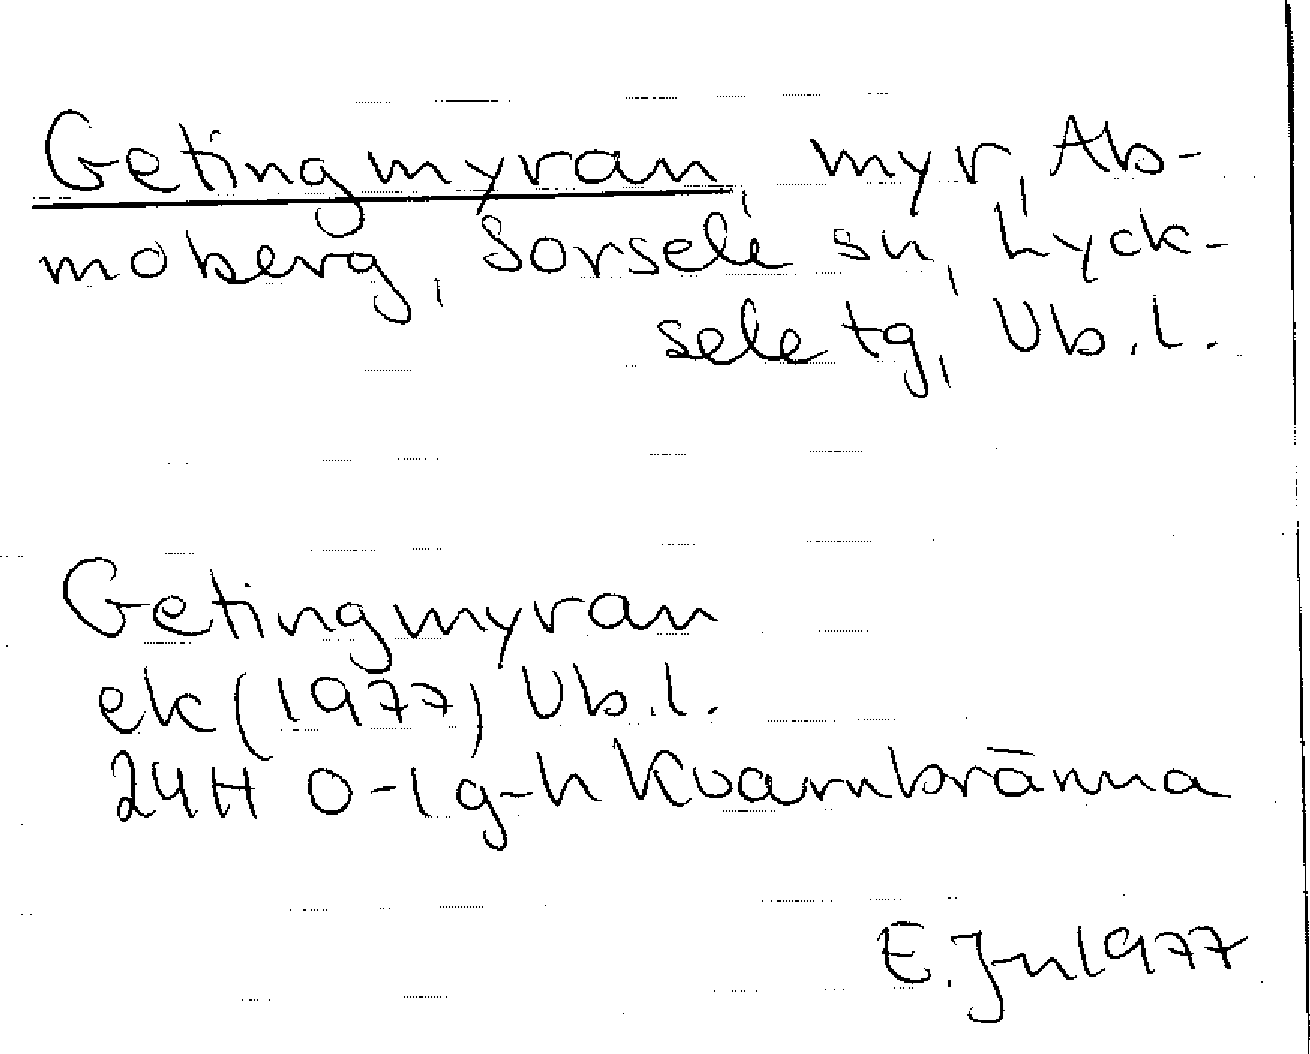 Getingmyran, myr, Ab-
moberg, Sorsele sn, Lyck-
sele tg, Vb.l.
Getingmyran
ek (1977) Vb.l.
24H 0-1 g-h Kvarnbränna
E. Jn 1977